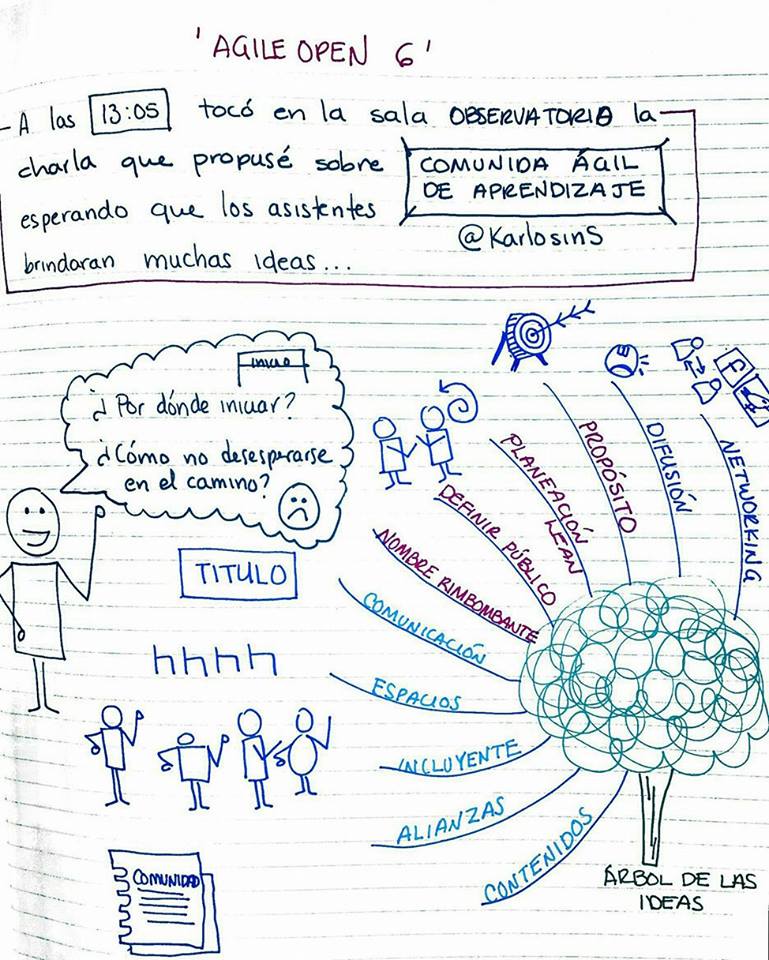 'AGILE OPEN 6'
A las 13:05 tocó en la sala OBSERVATORIO la
charla que propusé sobre COMUNIDA ÁGIL
DE APRENDIZAJE
esperando que los asistentes
@KarlosinS
brindaran muchas ideas...
INICIO
¿Por dónde iniciar?
¿Cómo no desesperarse
en el camino?
TITULO
NETWORKING
DIFUSIÓN
PROPÓSITO
PLANEACIÓN
LEAN
DEFINIR PÚBLICO
NOMBRE RIMBOMBANTE
COMUNICACIÓN
ESPACIOS
INCLUYENTE
ALIANZAS
CONTENIDOS
COMUNIDAD
ÁRBOL DE LAS
IDEAS
f